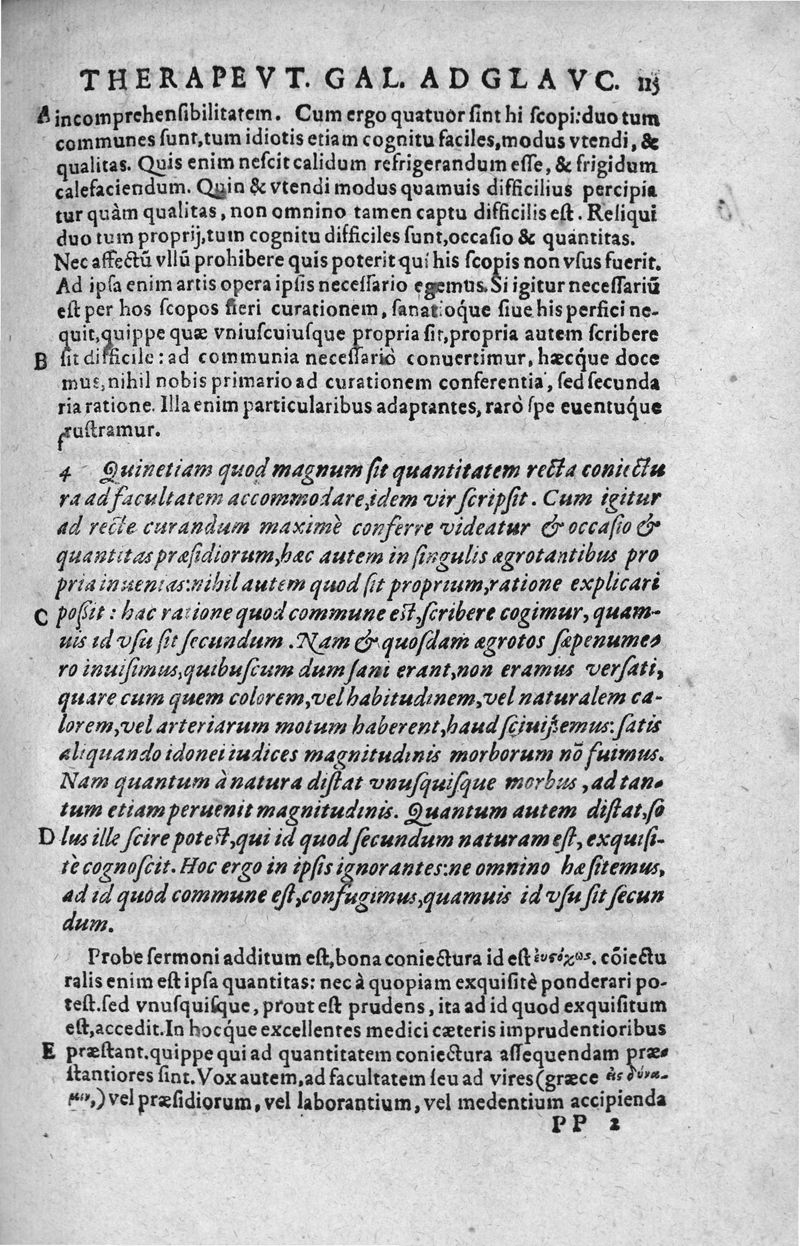 THERAPEVT. GAL. AD GLAVC. 115
A incomprehensibilitatem. Cum ergo quatuor sint hi scopi: duo tum
communes sunt, tum idiotis etiam cognitu faciles, modus vtendi, &
qualitas. Quis enim nescit calidum refrigerandum esse, & frigidum
calefaciendum. Quin & vtendi modus quamuis difficilius percipia
tur quàm qualitas, non omnino tamen captu difficilis est. Reliqui
duo tum proprij, tum cognitu difficiles sunt, occasio & quantitas.
Nec affectũ vllũ prohibere quis poterit qui his scopis non vsus fuerit.
Ad ipsa enim artis opera ipsis necessario egemus. Si igitur necessariũ
est per hos scopos fieri curationem, sanatioq́ue siue his perfici ne-
quit, quippe quæ vniuscuiusque propria sit, propria autem scribere
B sit difficile: ad communia necessariò conuertimur, hæcq́ue doce
mus, nihil nobis primario ad curationem conferentia, sed secunda
ria ratione. Illa enim particularibus adaptantes, rarò spe euentuq́ue
frustramur.
4 Quinetiam quod magnum sit quantitatem recta coniectu
ra ad facultatem accommodare, idem vir scripsit. Cum igitur
ad recte curandum maximè conferre videatur & occasio &
quantitas præsidiorum, hæc autem in singulis ægrotantibus pro
pria inuenias: nihil autem quod sit proprium, ratione explicari
C possit: hac ratione quod commune est, scribere cogimur, quam-
uis id vsu sit secundum. Nam & quosdam ægrotos sæpenume-
ro inuisimus, quibuscum dum sani erant, non eramus versati,
quare cum quem colorem, vel habitudinem, vel naturalem ca-
lorem, vel arteriarum motum haberent, haud sciuissemus: satis
aliquando idonei iudices magnitudinis morborum nõ fuimus.
Nam quantum à natura distat vnusquisque morbus, ad tan-
tum etiam peruenit magnitudinis. Quantum autem distat, so
D lus ille scire potest, qui id quod secundum naturam est, exquisi-
tè cognoscit. Hoc ergo in ipsis ignorantes: ne omnino hæsitemus,
ad id quod commune est, confugimus, quamuis id vsu sit secun
dum.
Probe sermoni additum est, bona coniectura id est . cõiectu
ralis enim est ipsa quantitas: nec à quopiam exquisitè ponderari po-
test. sed vnusquisque, prout est prudens, ita ad id quod exquisitum
est, accedit. In hocq́ue excellentes medici cæteris imprudentioribus
E præstant. quippe qui ad quantitatem coniectura assequendam præ-
stantiores sint. Vox autem, ad facultatem seu ad vires (græce
) vel præsidiorum, vel laborantium, vel medentium accipienda
PP 2